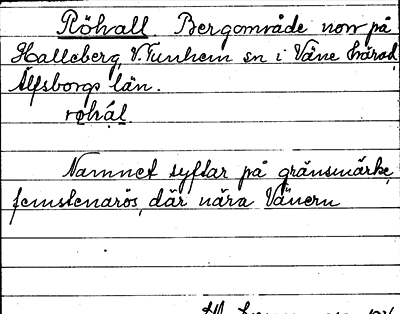 Röhall. Bergområde norr på
Halleberg, V. Tunhem sn i Väne härad,
Älfsborgs län.
røhál.
Namnet syftar på gränsmärke,
femstenarös, där nära Vänern